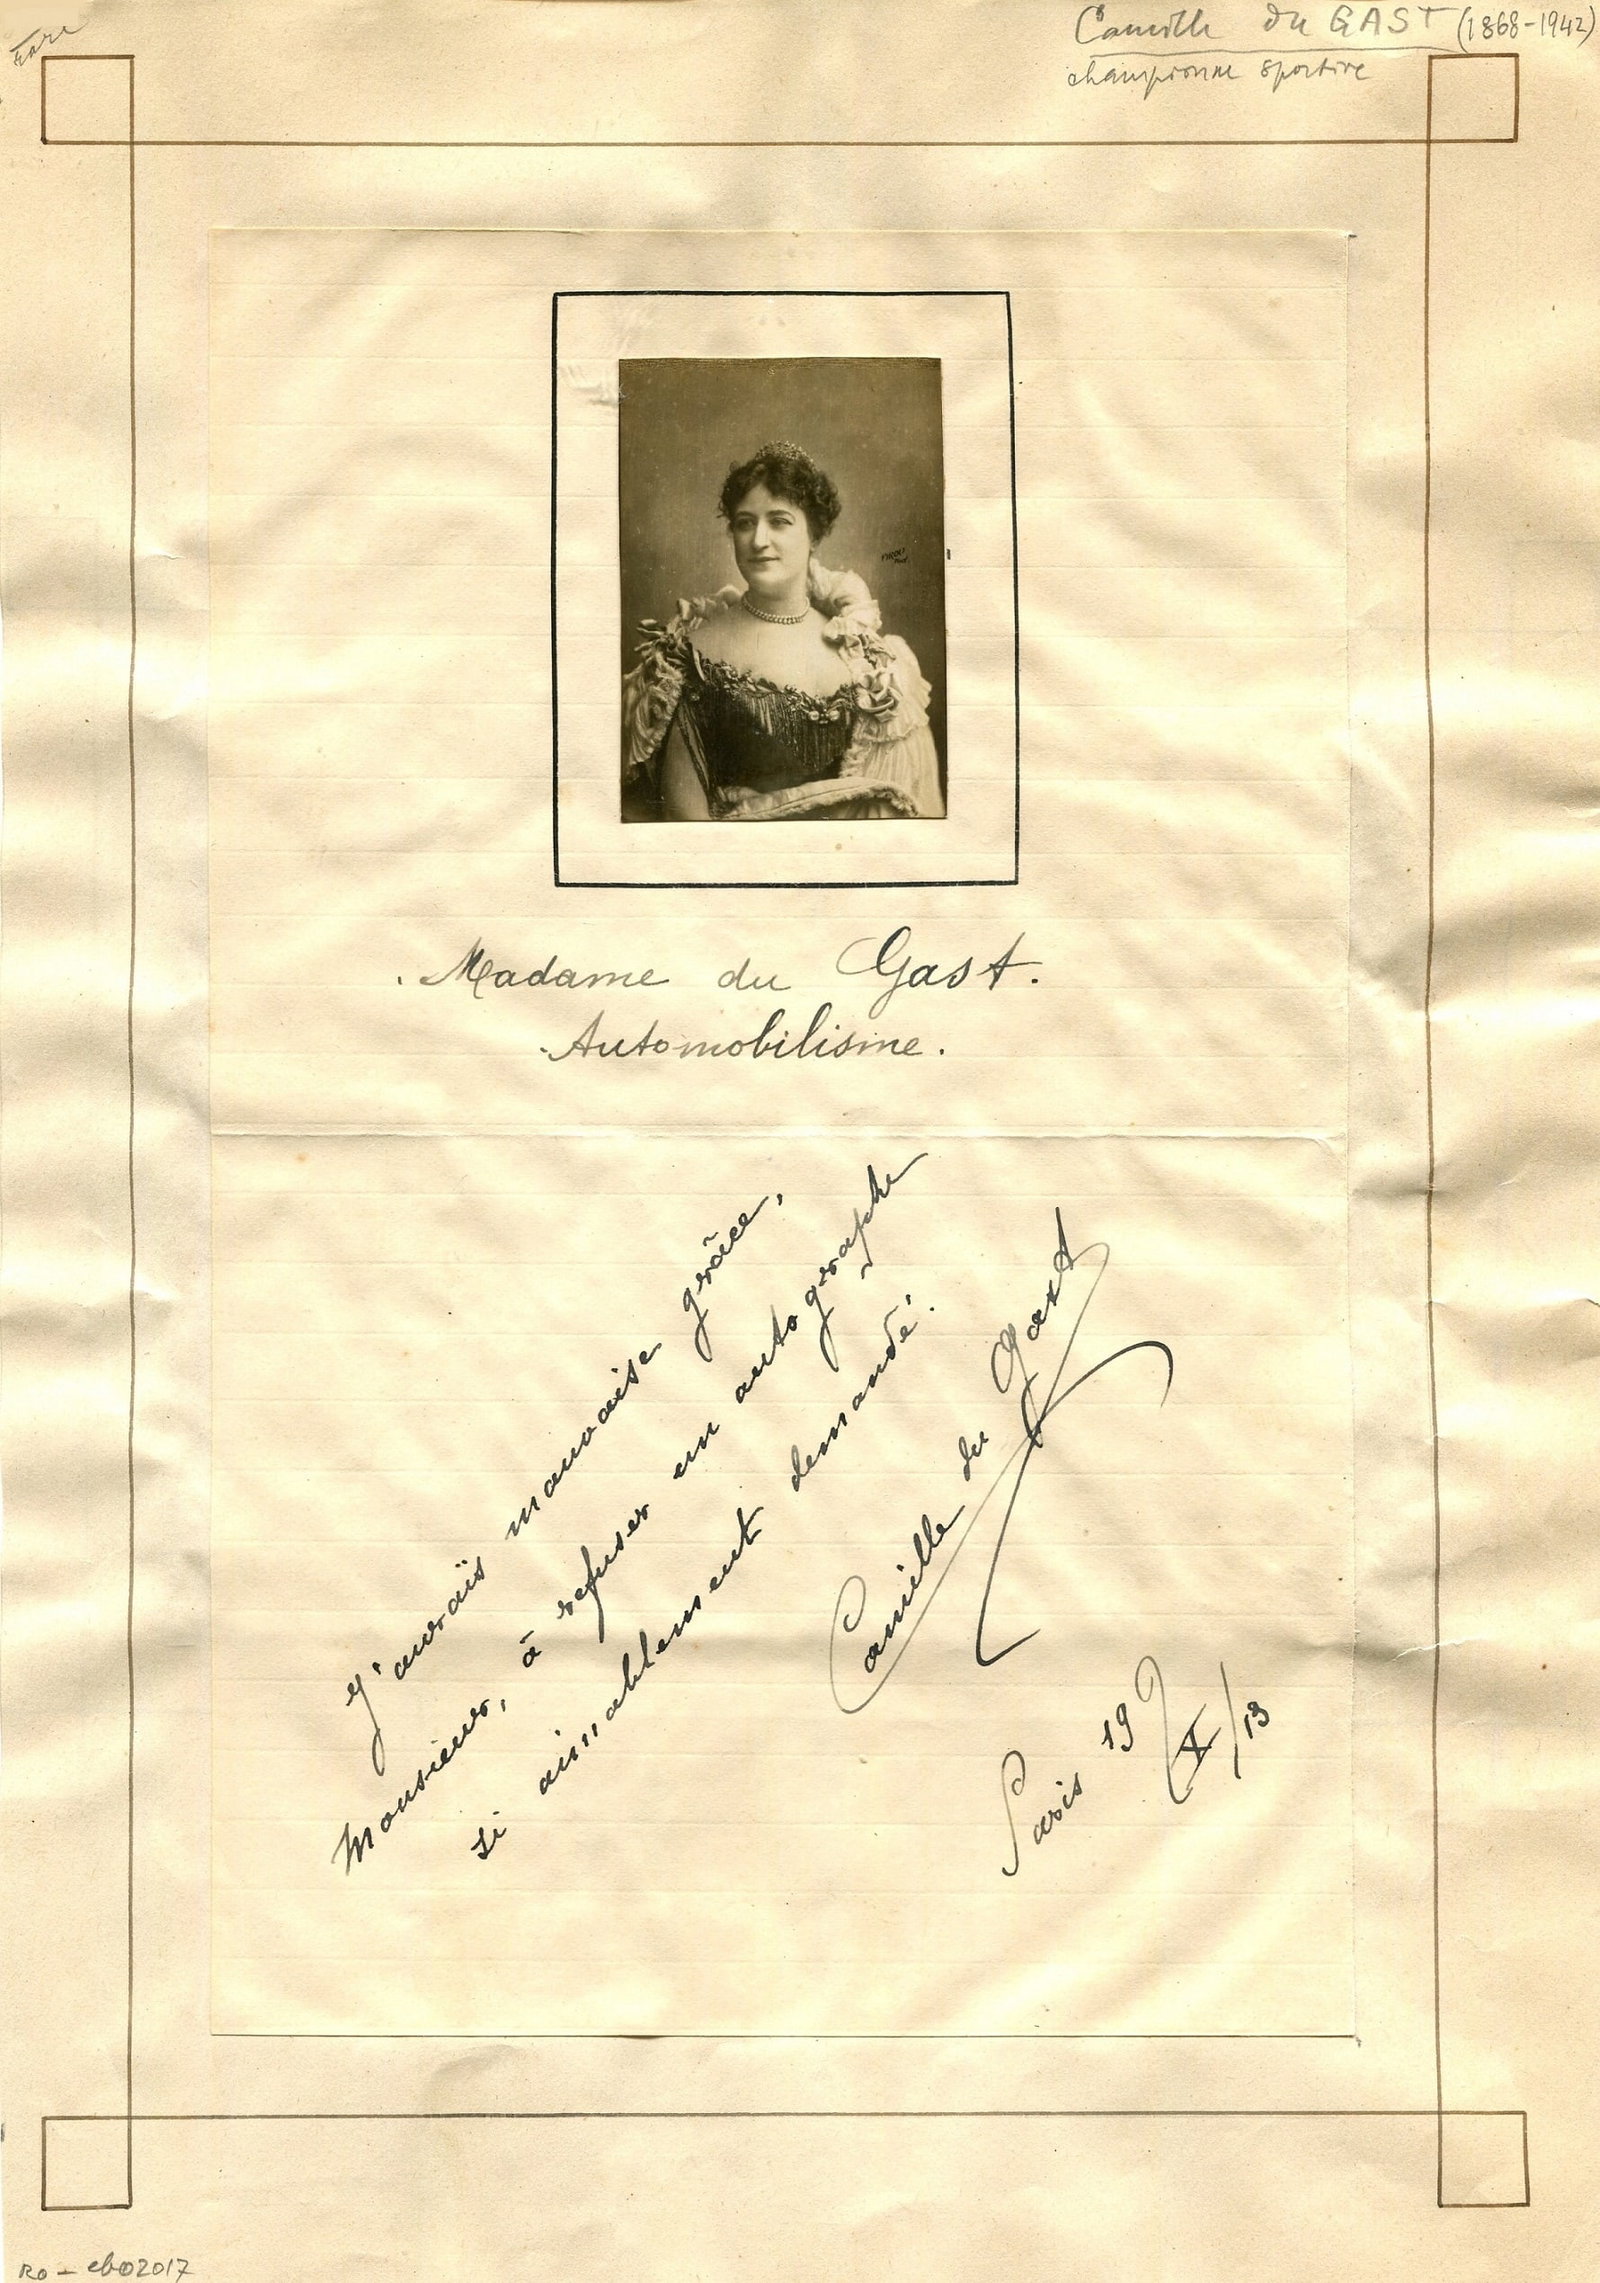 Camille du GAST (1868-1942)
championne sportive
PIROU
. Madame du Gast.
. Automobilisme.
J'aurais mauvaise grâce,
Monsieur, à refuser un autographe
si aimablement demandé.
Camille du Gast
Paris 19/X/13
RO - ebo2017